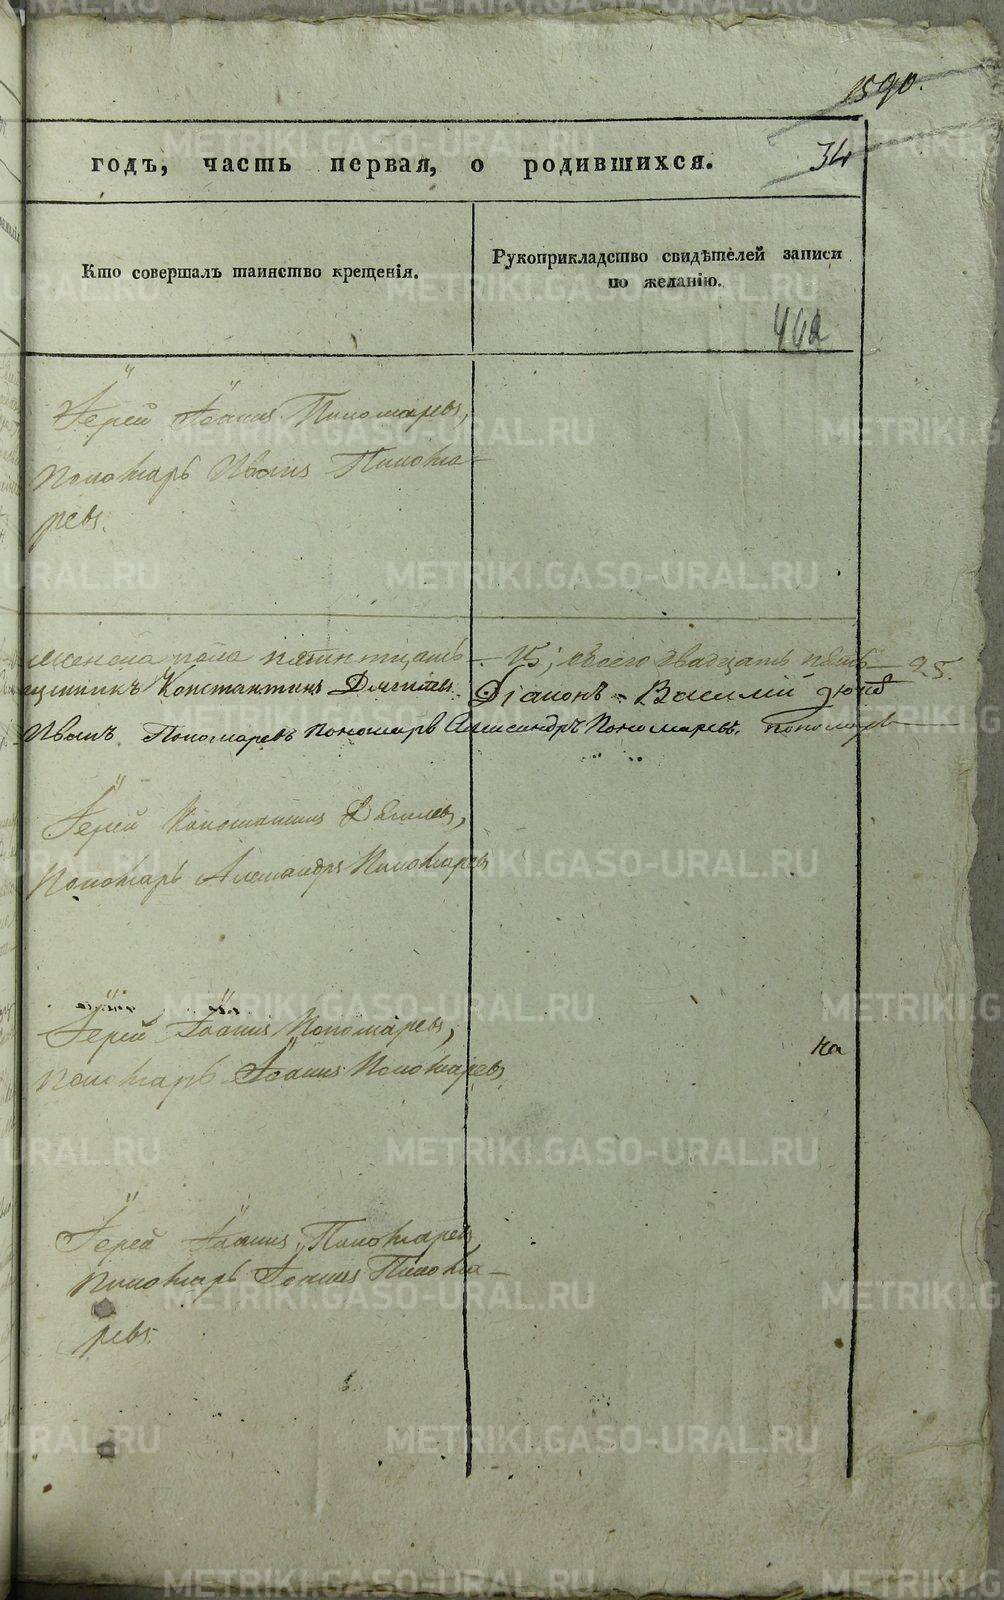 1590.
34
годъ, часть первая, о родившихся.
Кто совершалъ таинство крещенія.
Рукоприкладство свидѣтелей записи
по желанію.
462
Іерей Іоаннъ Пономаревъ,
Пономарь Иванъ Понома-
ревъ.
женска пола пятнатцать — 15; всего двадцать пять — 25.
щенникъ Константинъ Діаконъ Василий
Иванъ Пономаревъ пономарь Александръ Пономаревъ. пономарь
Іерей Константинъ
Пономарь Александръ Пономаревъ
Іерей Іоаннъ Пономаревъ,
Пономарь Іоаннъ Пономаревъ
на
Іерей Іоаннъ Пономаревъ
Пономарь Іоаннъ Понома-
ревъ.
METRIKI.GASO-URAL.RU